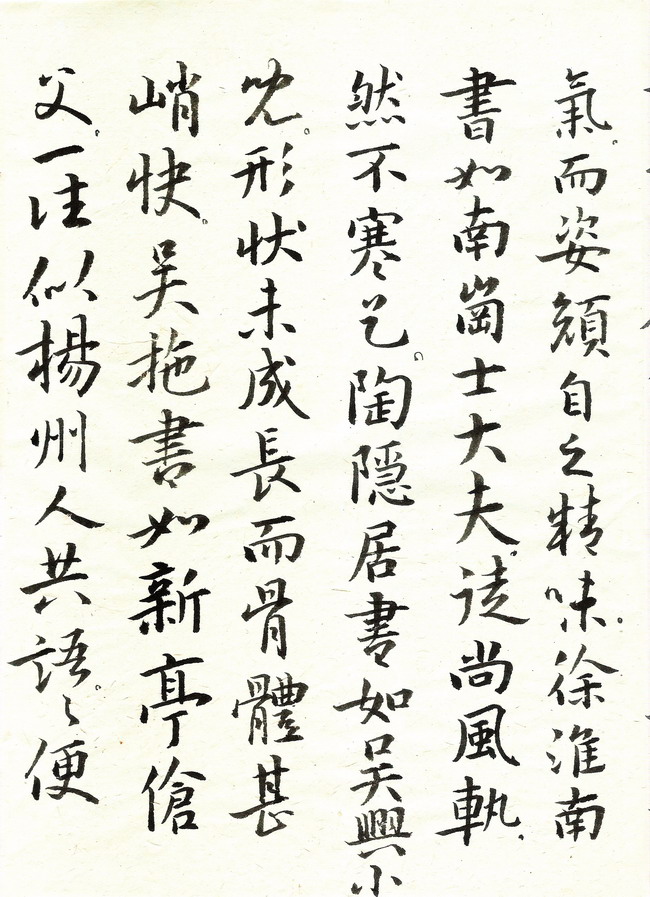 氣。而姿顔自乏精味。徐淮南
書如南崗士大夫。徒尚風軌。
然不寒乞。陶隠居書如吴興小
児。形状未成長而骨體甚
峭快。吴拖書如新亭傖
父。一往似楊州人共語。々便